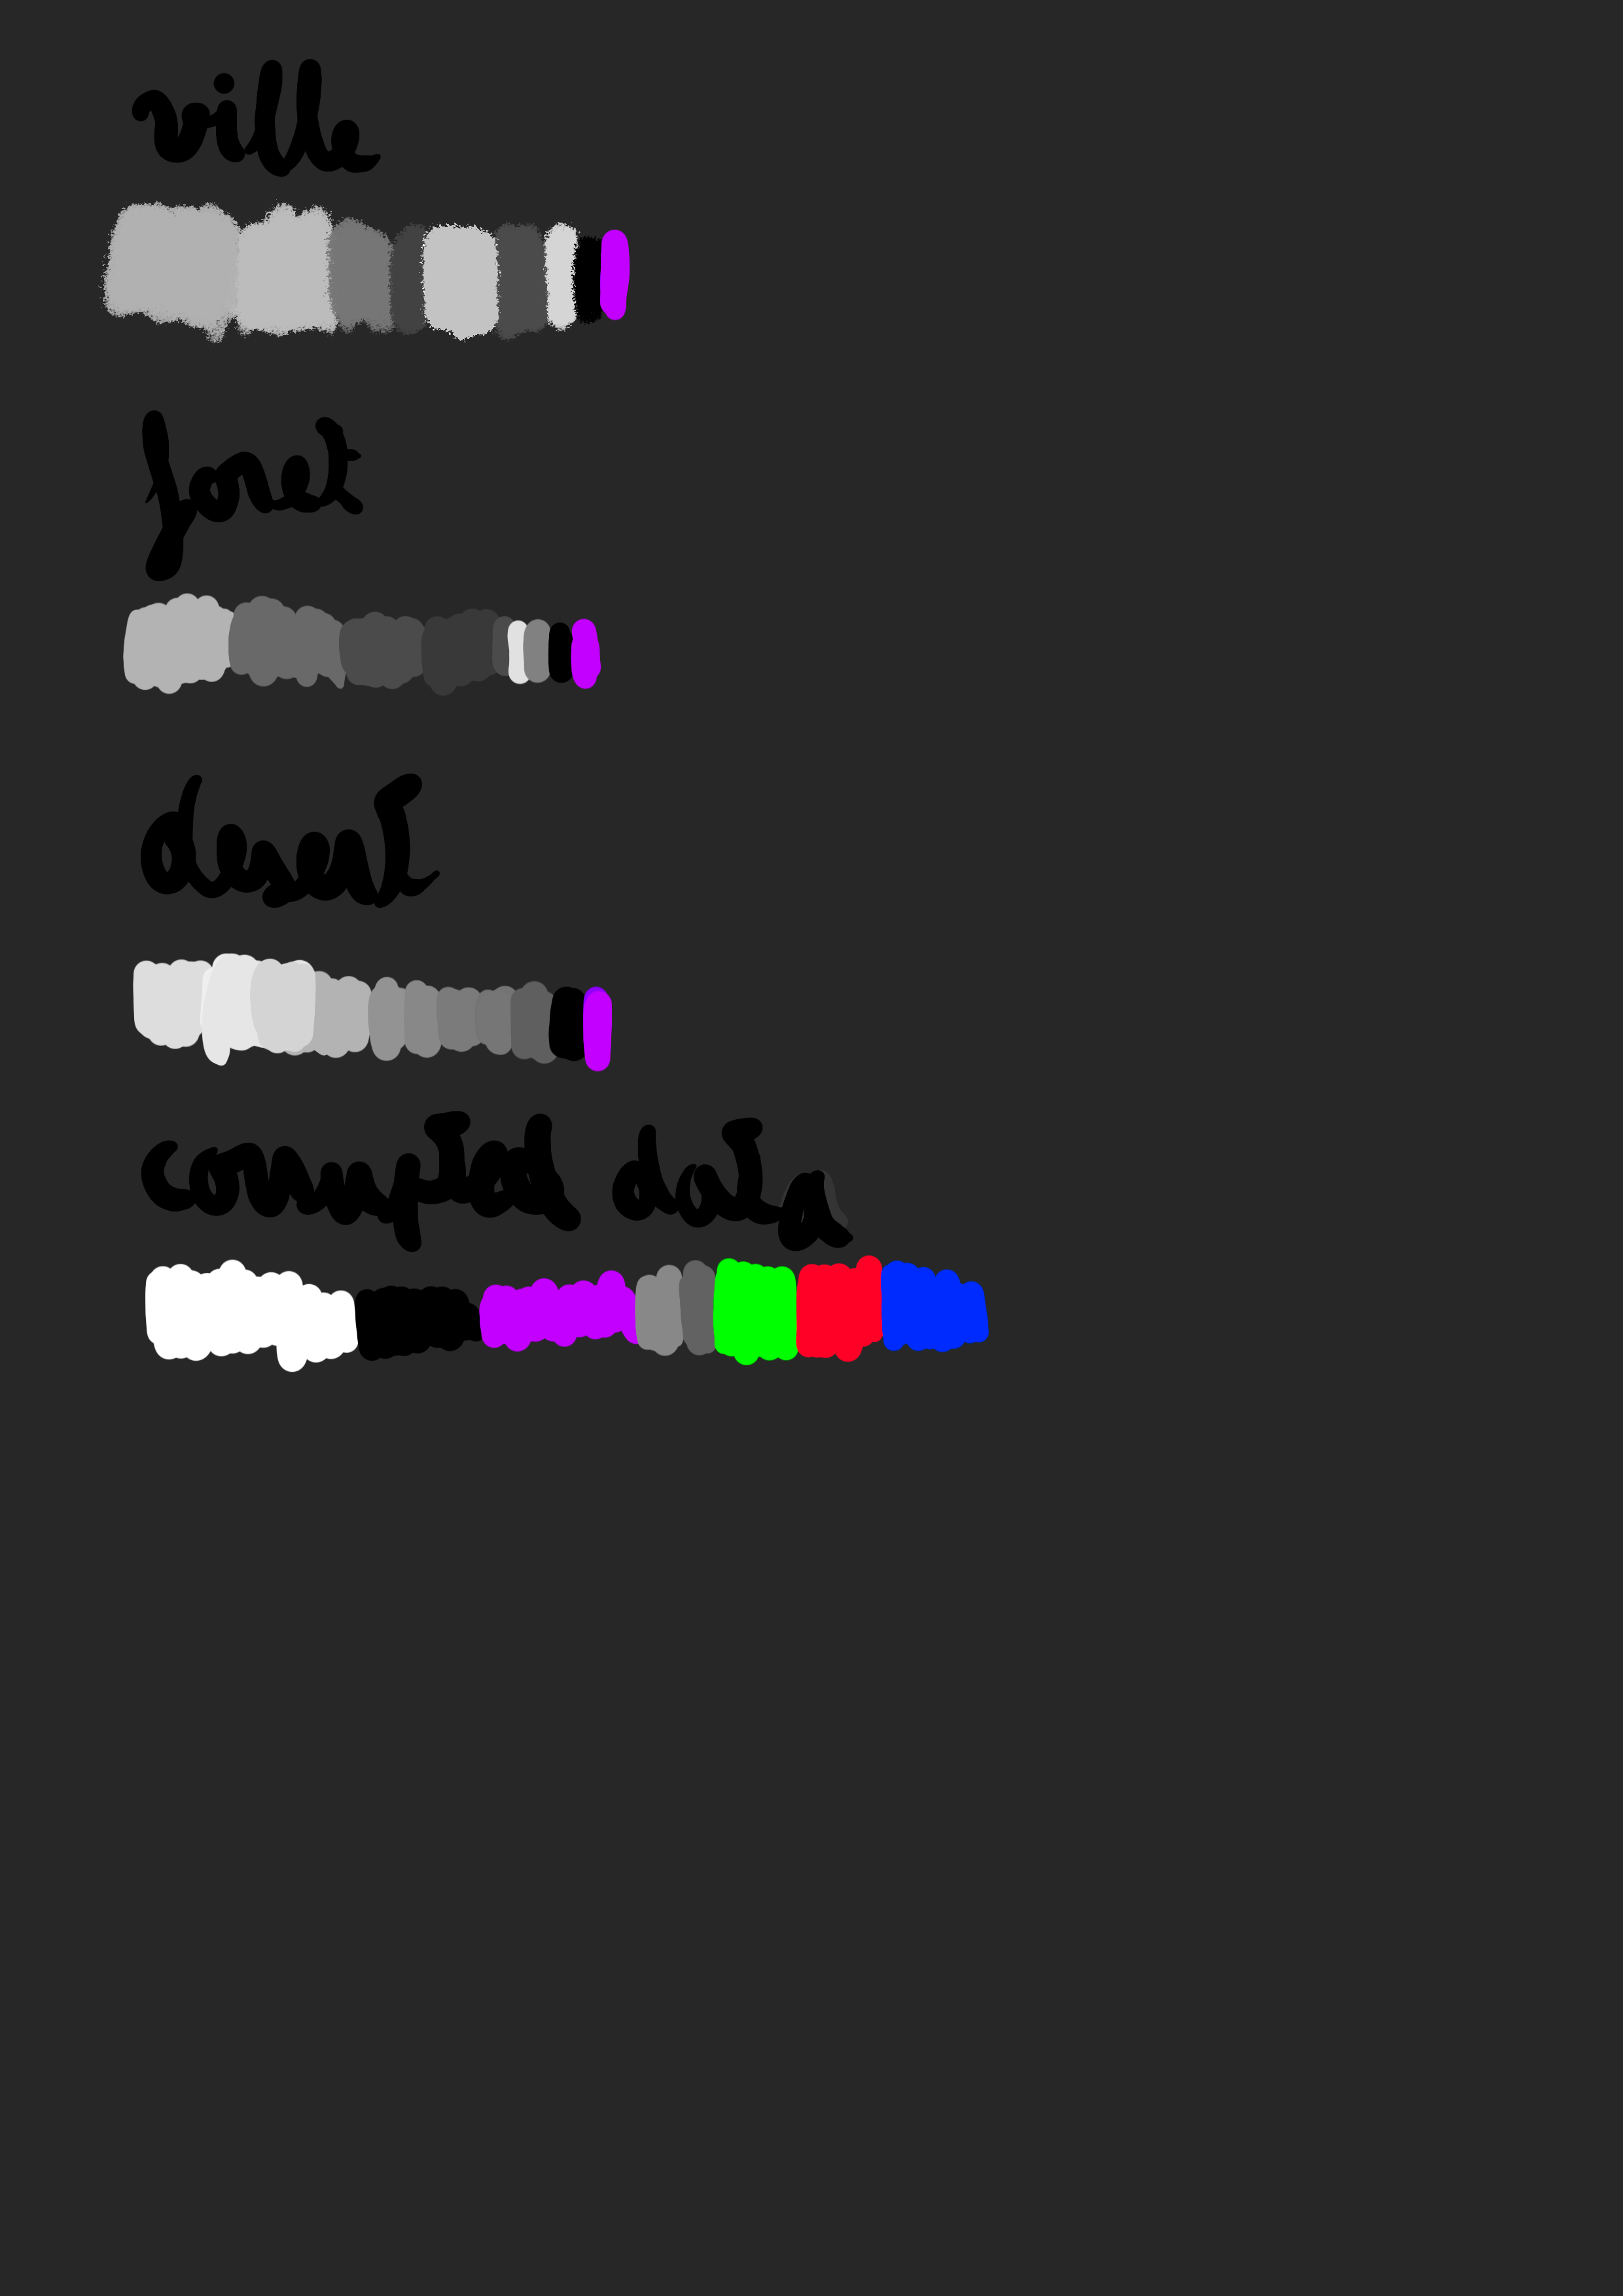 ville
foret
desert
corrupted data